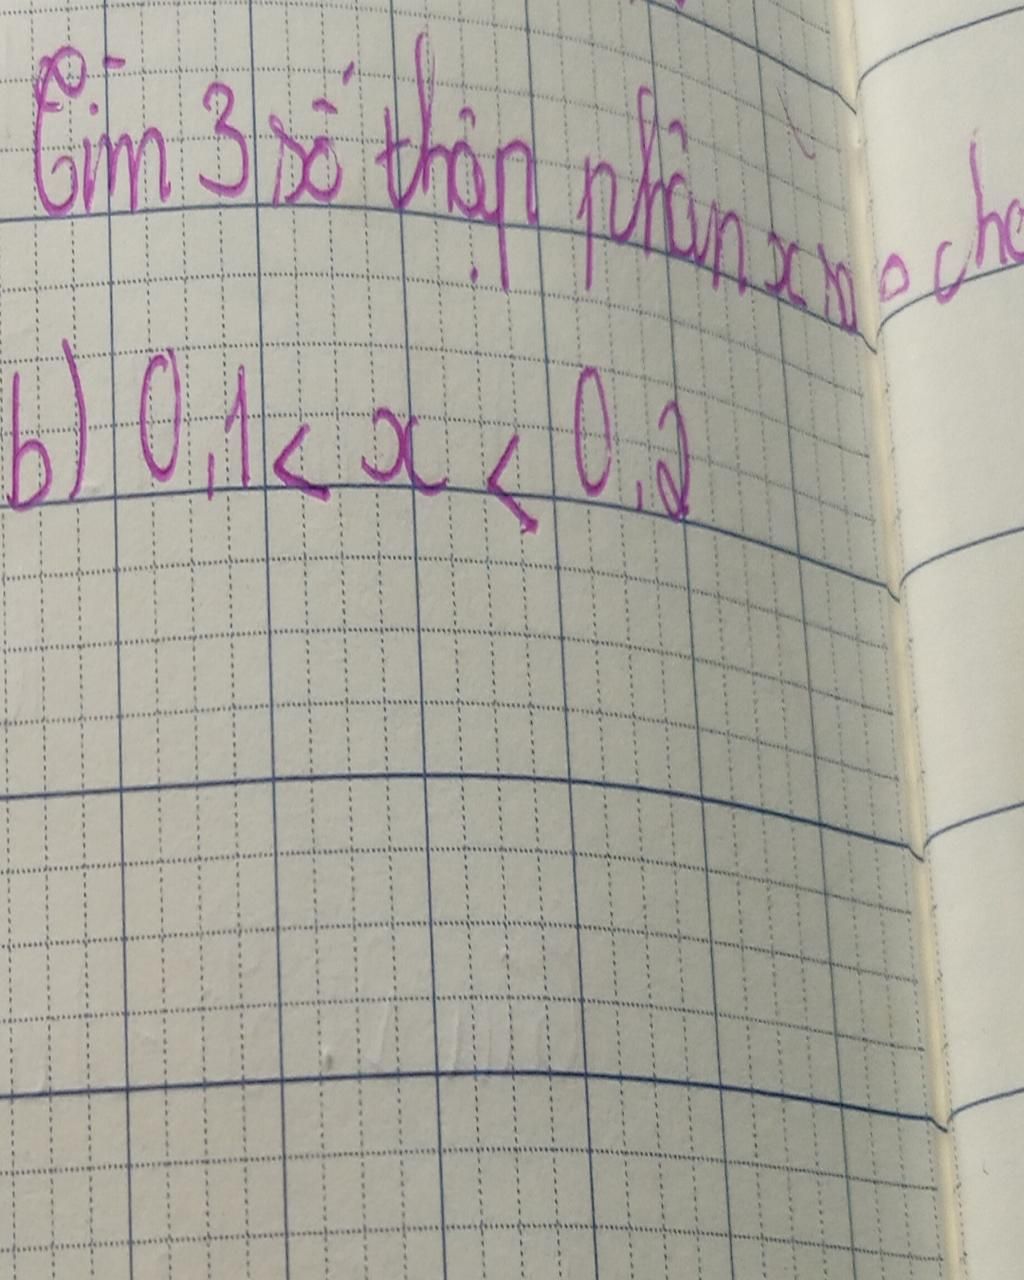 Tìm 3 số thập phân x sao cho
b) 0,1 < x < 0,2